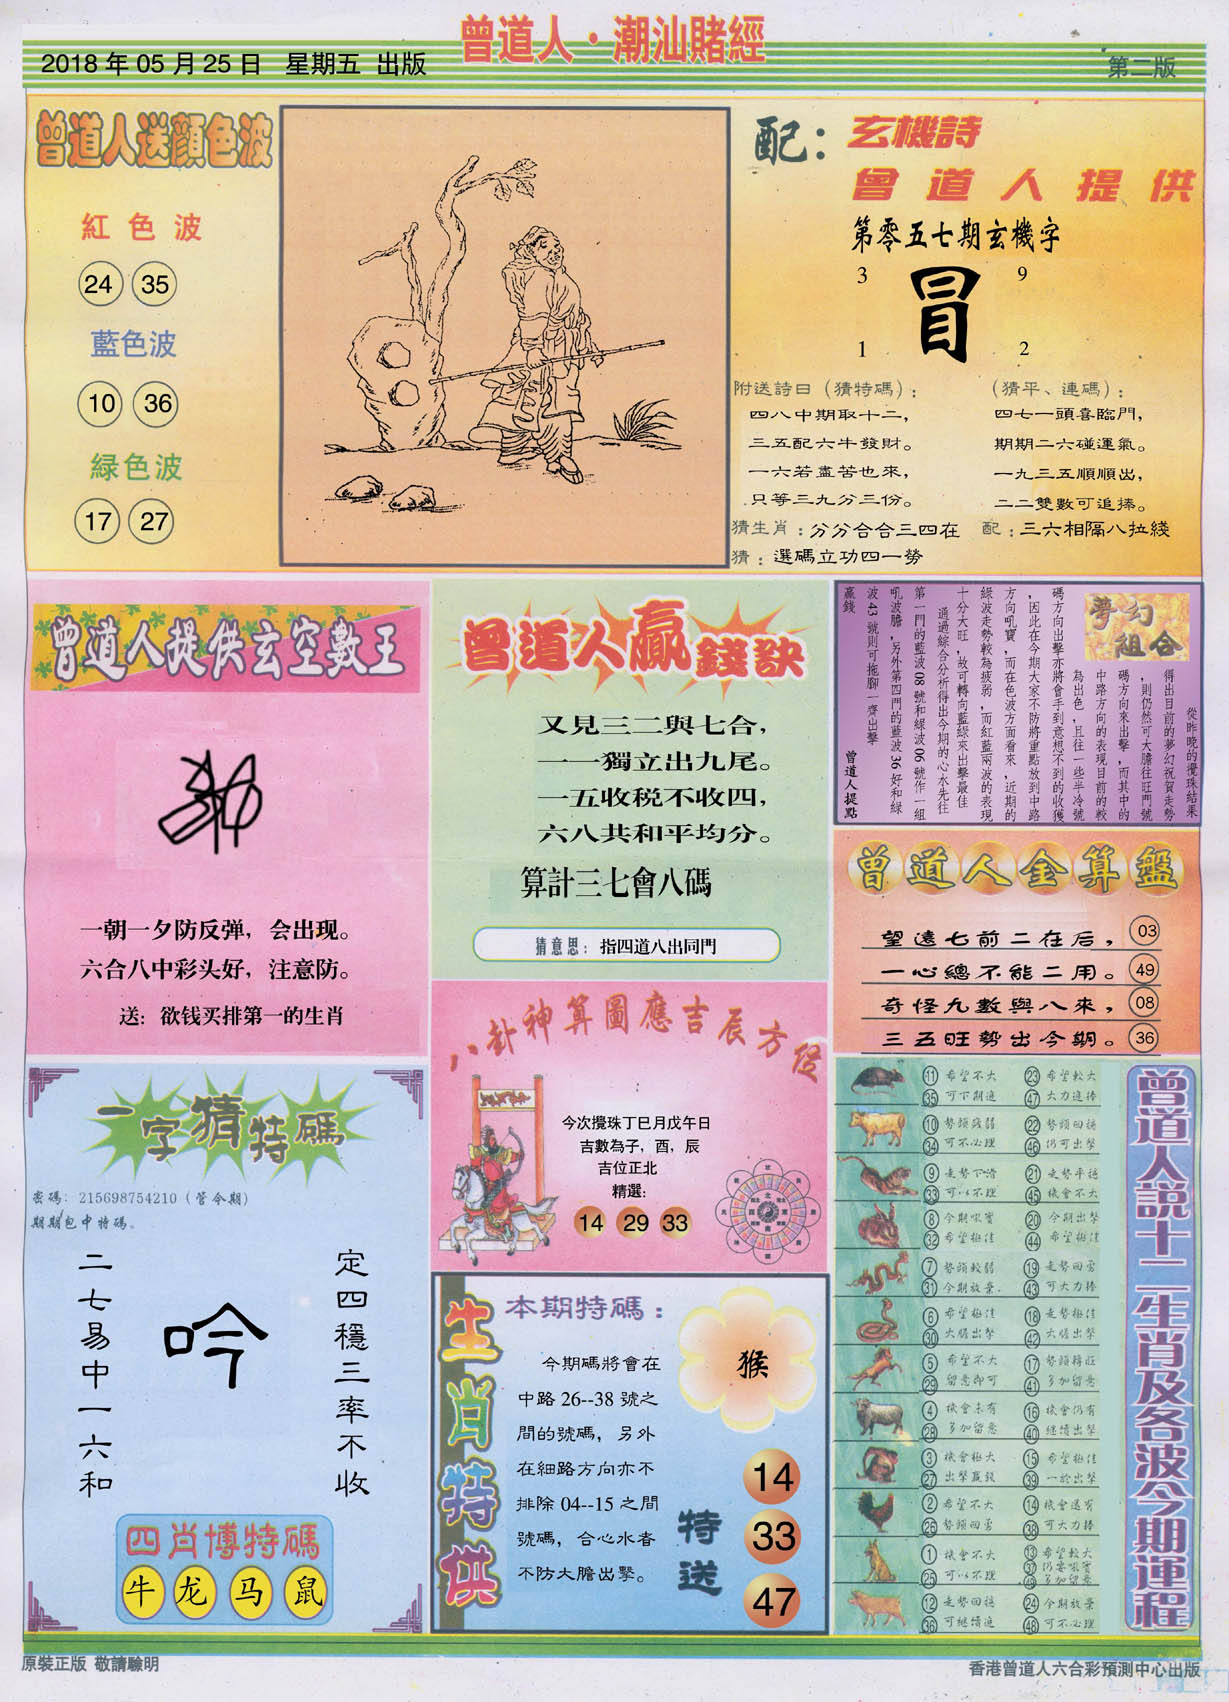 曾道人·潮汕賭經
2018年05月25日 星期五 出版
第二版
曾道人送顔色波
紅色波
24 35
藍色波
10 36
緑色波
17 27
配：玄機詩
曾道人提供
第零五七期玄機字
3 9
冒
1 2
附送詩曰（猜特碼）：
四八中期取十二，
三五配六牛發財。
一六若盡苦也來，
只等三九分三份。
（猜平、連碼）：
四七一頭喜臨門，
期期二六碰運氣。
一九三五順順出，
二二雙數可追捧。
猜生肖：分分合合三四在
配：三六相隔八拉綫
猜：選碼立功四一勞
曾道人提供玄空數王
一朝一夕防反弹，会出现。
六合八中彩头好，注意防。
送：欲钱买排第一的生肖
曾道人贏錢訣
又見三二與七合，
一一獨立出九尾。
一五收税不收四，
六八共和平均分。
算計三七會八碼
猜意思：指四道八出同門
夢幻組合
從昨晚的攪珠結果
得出目前的夢幻祝賀走勢
，則仍然可大膽往旺門號
碼方向來出擊，而其中的
中路方向的表現目前的較
為出色，且往一些半冷號
碼方向出擊亦將會手到意想不到的收獲
，因此在今期大家不防將重點放到中路
方向吼寶，而在色波方面看來，近期的
綠波走勢較為疲弱，而紅藍兩波的表現
十分大旺，故可轉向藍綠來出擊最佳
通過綜合分析得出今期的心水先往
第一門的藍波08號和綠波06號作一組
吼波膽，另外第四門的藍波36好和綠
波43號則可拖腳一齊出擊
贏錢
曾道人提點
曾道人金算盤
望遠七前二在后， 03
一心總不能二用。 49
奇怪九數與八來， 08
三五旺勢出今期。 36
八卦神算圖應吉辰方位
今次攪珠丁巳月戊午日
吉數為子，酉，辰
吉位正北
精選：
14 29 33
一字猜特碼
密碼：215698754210（管令期）
期期包中特碼。
定四穩三率不收
吟
二七易中一六和
四肖博特碼
牛 龙 马 鼠
生肖特供
本期特碼：
今期碼將會在
中路26--38號之
間的號碼，另外
在細路方向亦不
排除04--15之間
號碼，合心水者
不防大膽出擊。
猴
特送
14
33
47
曾道人説十二生肖及各波今期運程
11 希望不大 23 希望較大
35 可下期追 47 大力追捧
10 勢頭殘弱 22 勢頭回穩
34 可不必理 46 仍可出擊
9 走勢下滑 21 走勢平穩
33 可以不理 45 機會不大
8 今期吼寶 20 今期出擊
32 希望極佳 44 希望極佳
7 勢頭較弱 19 走勢回勇
31 今期放棄 43 可大力捧
6 希望極佳 18 走勢極佳
30 大膽出擊 42 大膽出擊
5 希望不大 17 勢頭轉旺
29 留意即可 41 多加留意
4 機會未有 16 機會仍有
28 多加留意 40 繼續出擊
3 機會極大 15 希望極佳
27 出擊贏錢 39 一於出擊
2 希望不大 14 機會還有
26 勢頭回勇 38 可大力捧
1 機會不大 13 希望較大
25 可以不理 37 仍要吼實
49 多加留意
12 走勢回穩 24 今期放棄
36 可繼續追 48 可不必理
原裝正版 敬請驗明
香港曾道人六合彩預測中心出版